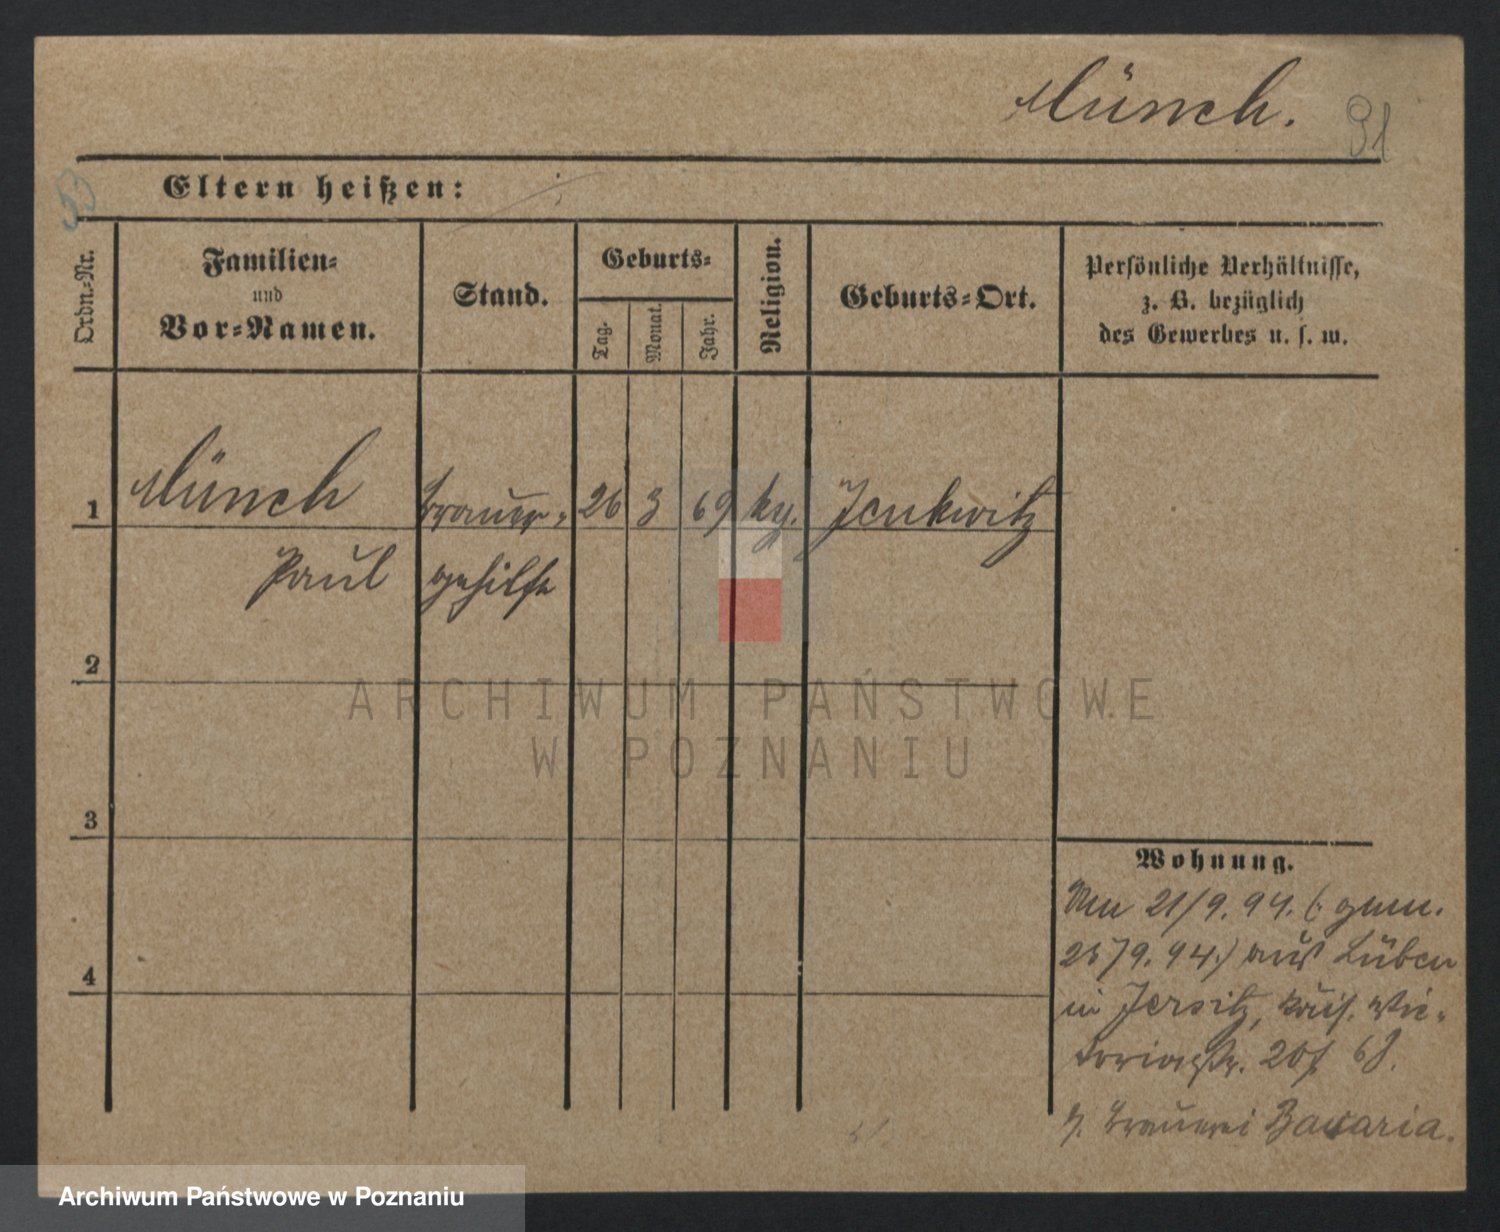 Münch.
91
Eltern heißen:
Ordn.-Nr.
Familien-
und
Vor-Namen.
Stand.
Geburts-
Tag.
Monat.
Jahr.
Religion.
Geburts-Ort.
Persönliche Verhältnisse,
z. B. bezüglich
des Gewerbes u. s. w.
1
Münch
Brauer-
26
3
69
Jenkwitz
Paul
gehilfe
2
ARCHIWUM PAŃSTWOWE
W POZNANIU
3
Wohnung.
Am 21/9. 94. (: gem.
9. 94.) aus Lüben
4
in Jersitz, Vic-
toriastr.
Brauerei Bavaria.
Archiwum Państwowe w Poznaniu